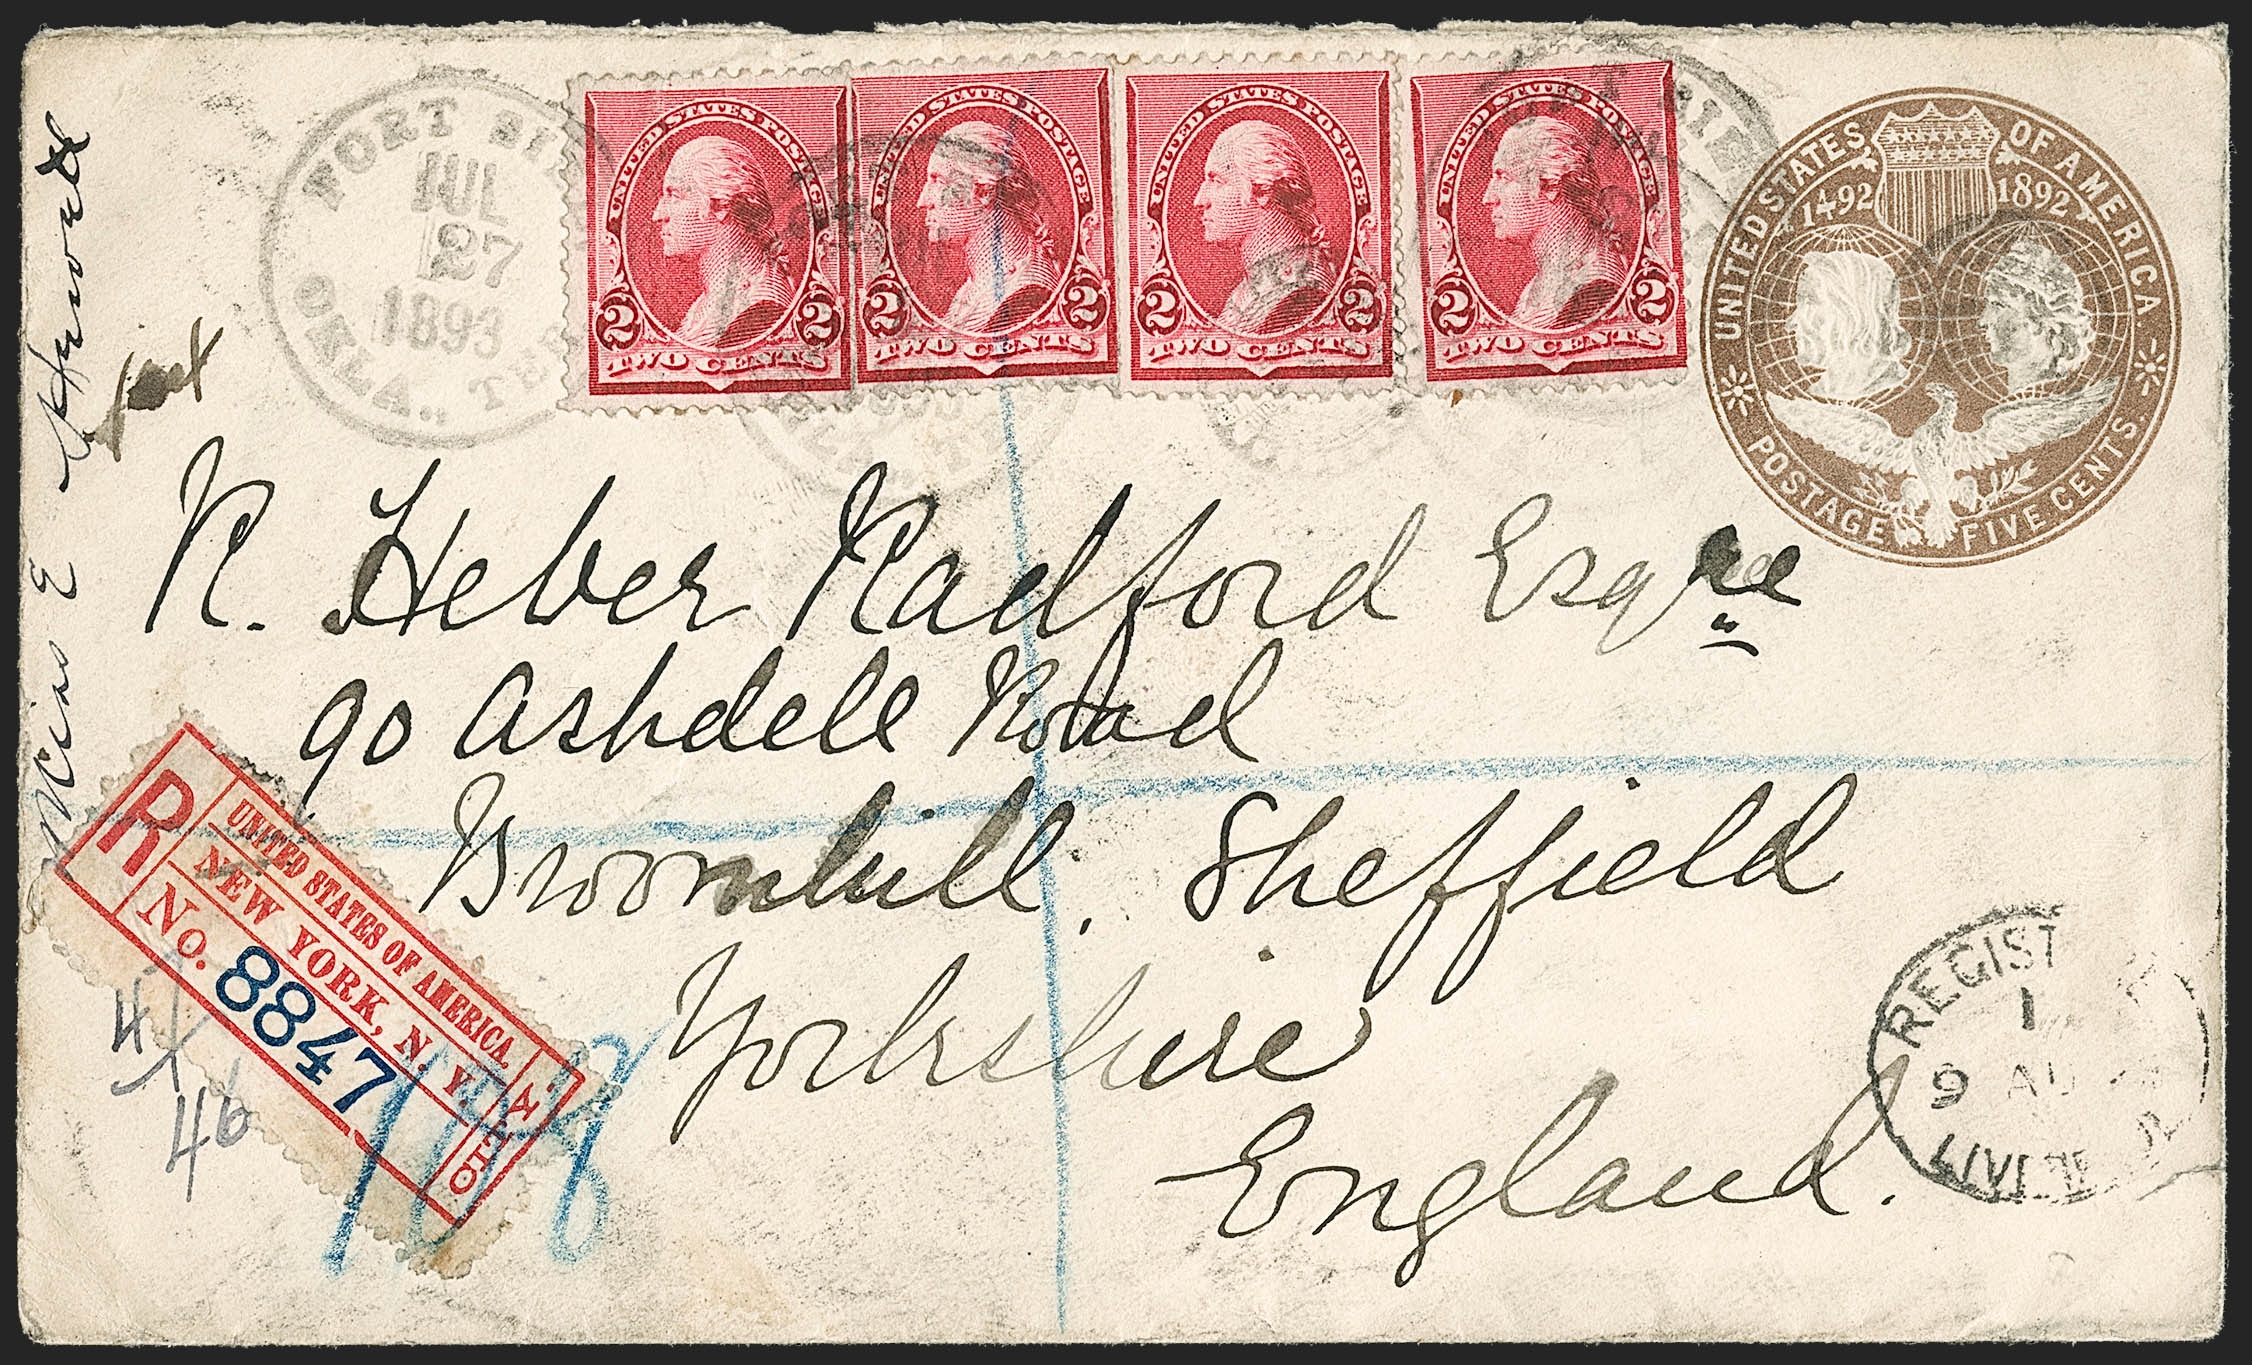 FORT
JUL
27
1893
OKLA., TER
UNITED STATES POSTAGE
2 2
TWO CENTS
UNITED STATES POSTAGE
2 2
TWO CENTS
UNITED STATES POSTAGE
2 2
TWO CENTS
UNITED STATES POSTAGE
2 2
TWO CENTS
UNITED STATES OF AMERICA.
1492 1892
POSTAGE FIVE CENTS
R. Heber Radford Esqre
90 Ashdell Road
Broomhill, Sheffield
Yorkshire
England.
Miss E
R
UNITED STATES OF AMERICA.
NEW YORK, N. Y.
No. 8847
108
47
46
REGISTERED
1
9 AU
LIVERPOOL